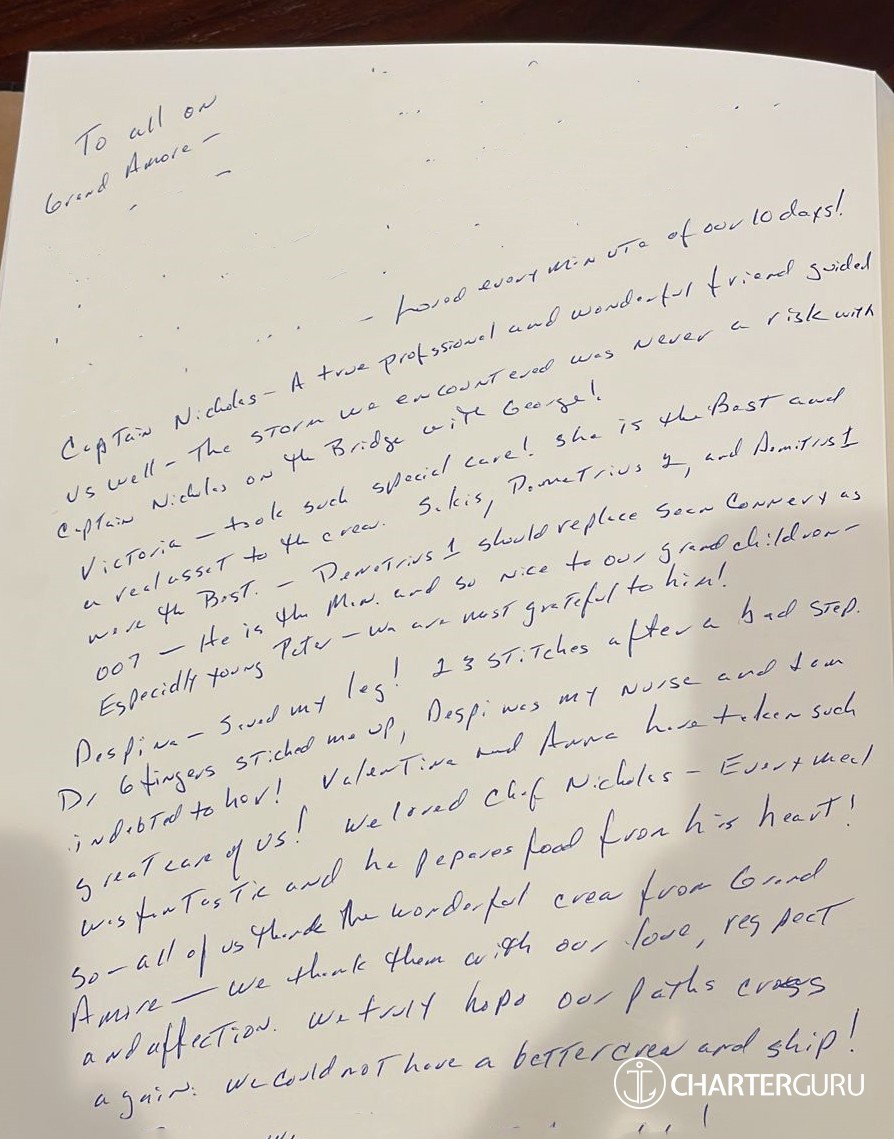 To all on
Grand Amore -
- Loved every minute of our 10 days!
Captain Nicholas - A true profssional and wonderful friend guided
us well - The storm we encountered was never a risk with
Captain Nicholas on the Bridge with George!
Victoria - took such special care! She is the Best and
a real asset to the crew. Sakis, Demetrius 2, and Demitrus 1
were the Best. - Demetrius 1 should replace Sean Connery as
007 - He is the Man. and so nice to our grandchildren -
Especially young Peter - we are most grateful to him!
Despina - Saved my leg! 23 stitches after a bad step.
Dr 6 fingers stiched me up, Despi was my nurse and I am
indebted to her! Valentina and Anna have taken such
great care of us! We loved Chef Nicholas - Every meal
was fantastic and he pepares food from his heart!
So - all of us thank the wonderful crew from Grand
Amore - we thank them with our love, respect
and affection. We truly hope our paths cross
again. We could not have a better crew and ship!
CHARTERGURU